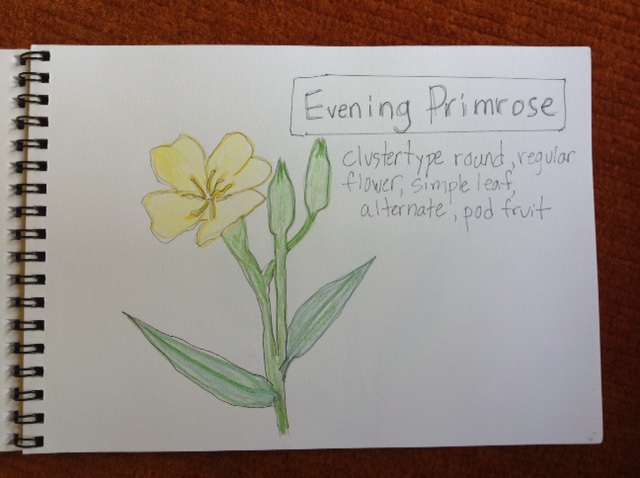 Evening Primrose
clustertype round, regular
flower, simple leaf,
alternate, pod fruit